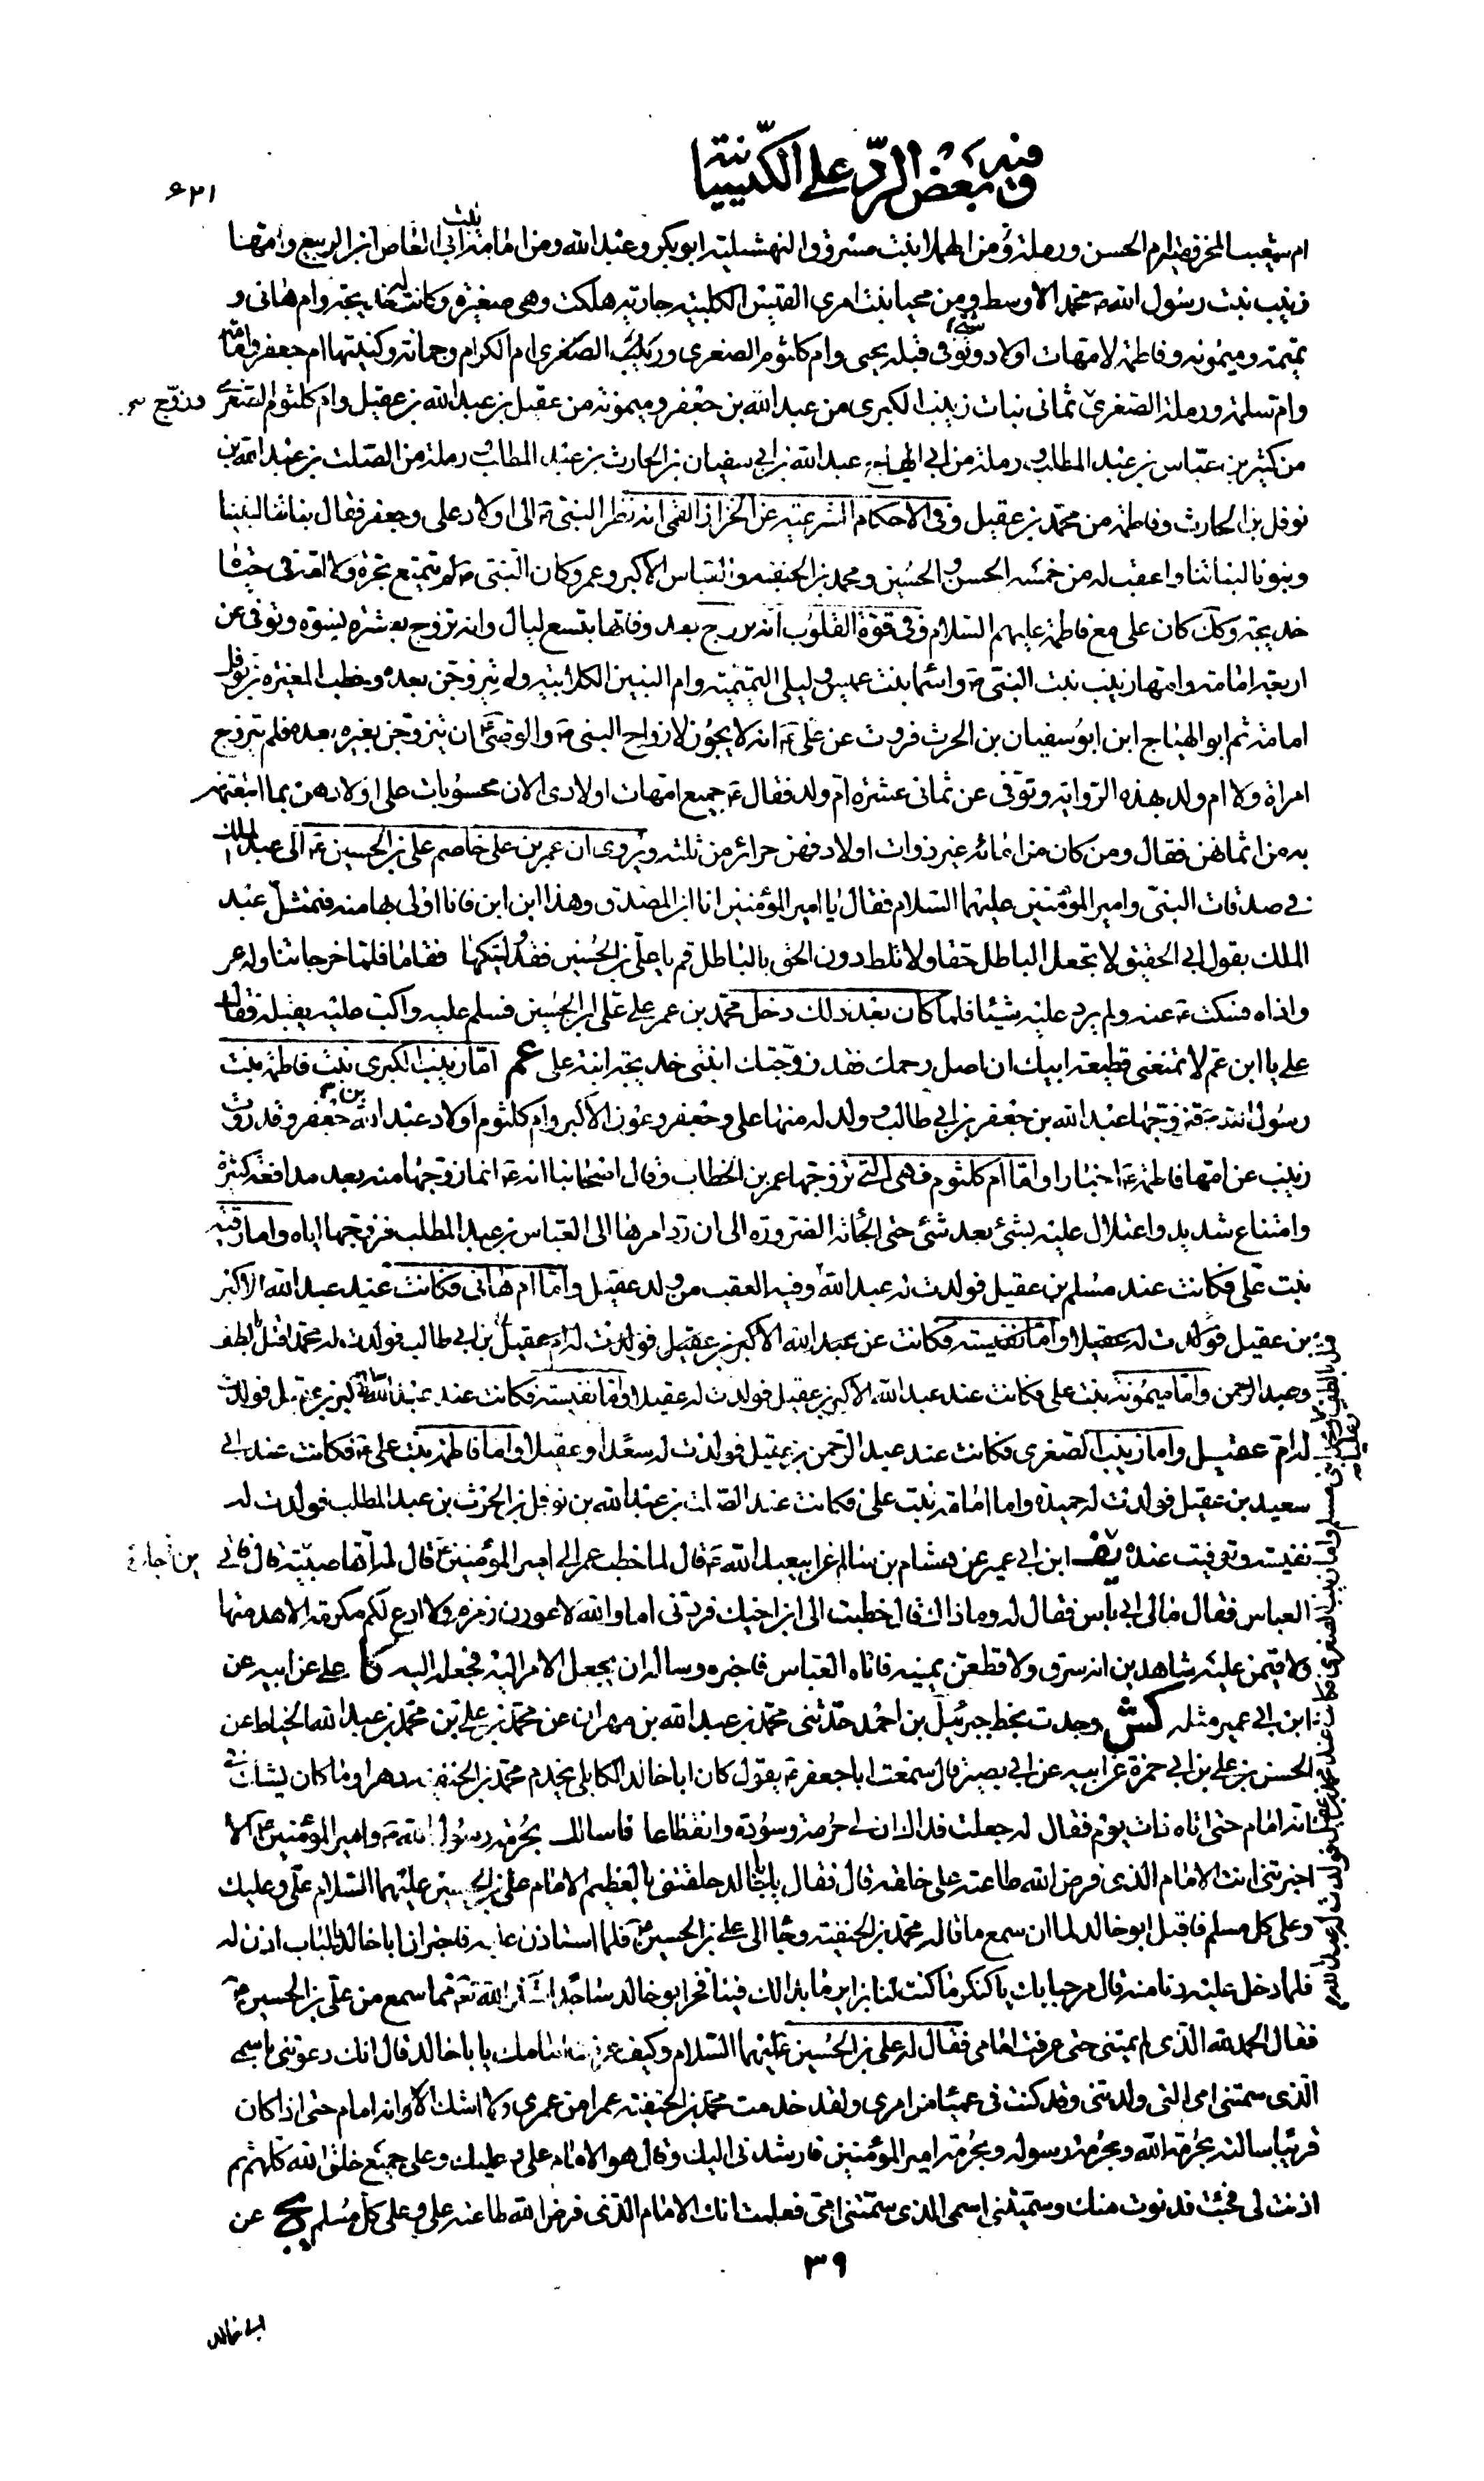 فيه بعض الرد على الكيسانية
٦٢١
ام شعيب المخزومية ام الحسن ورملة ومن الهملاء بنت مسروق النهشلية ابو بكر وعبد الله ومن امامة بنت ابي العاص ابن الربيع وامها
زينب بنت رسول الله ص محمد الاوسط ومن محيا بنت امرئ القيس الكلبية جارية هلكت وهي صغيرة وكانت له خديجة وام هانى و
تميمة وميمونة وفاطمة لامهات اولاد وتوفى قبله يحيى وام كلثوم الصغرى وزينب الصغرى ام الكرام وجمانة وكنيتها ام جعفر وامامة
وام سلمة ورملة الصغرى ثمانى بنات زينب الكبرى من عبد الله بن جعفر وميمونة من عقيل بن عبد الله بن عقيل وام كلثوم الصغرى وزوج
من كثير بن عباس بن عبد المطلب ورملة من ابي الهياج عبد الله بن ابي سفيان بن الحارث بن عبد المطلب ورملة من الصلت بن عبد الله بن
نوفل بن الحارث وفاطمة من محمد بن عقيل وفى الاحكام الشرعية عن الخزاز القمى انه نظر النبى ص الى اولاد على وجعفر فقال بناتنا لبنينا
وبنونا لبناتنا واعقب له من خمسة الحسن والحسين ومحمد بن الحنفية والعباس الاكبر وعمر وكان النبى ص لم يتمتع بحرة ولا امة فى حيوة
خديجة وكك كان على مع فاطمة عليهم السلام وفى قوة القلوب انه تزوج بعد وفاتها بتسع ليال وانه تزوج بعشرة نسوة وتوفى عن
اربعة امامة وامها زينب بنت النبى ص واسماء بنت عميس وليلى التميمية وام البنين الكلابية ولم يتزوجن بعده وخطب المغيرة بن نوفل
امامة ثم ابو الهياج ابن ابو سفيان بن الحرث فروت عن على ع انه لا يجوز لازواج النبى ص والوصى ع ان يتزوجن بغيره بعده فلم تتزوج
امراة ولا ام ولد بهذه الرواية وتوفى عن ثمانى عشرة ام ولد فقال ع جميع امهات اولادى الان محسوبات على اولادهن بما ابتعتهن
به من اثمانهن فقال ومن كان من امائه غير ذوات اولاد فهن حرائر من ثلثه ويروى ان عمر بن على خاصم على بن الحسين ع الى عبد الملك
فى صدقات النبى وامير المؤمنين عليهما السلام فقال يا امير المؤمنين انا ابن المصدق وهذا ابن ابن فانا اولى بها منه فتمثل عبد
الملك بقول ابي الحقيق لا تجعل الباطل حقا ولا تلط دون الحق بالباطل قم يا على بن الحسين فقد وليتكها فقاما فلما خرجا تناوله عمر
واذاه فسكت ع عنه ولم يرد عليه شيئا فلما كان بعد ذلك دخل محمد بن عمر على على بن الحسين فسلم عليه واكب عليه يقبله فقال
على يا ابن عم لا تمنعنى قطيعة ابيك ان اصل رحمك فقد زوجتك ابنتى خديجة ابنة على عم اما زينب الكبرى بنت فاطمة بنت
رسول الله ص فتزوجها عبد الله بن جعفر بن ابي طالب وولد له منها على وجعفر وعون الاكبر وام كلثوم اولاد عبد الله بن جعفر وقد روت
زينب عن امها فاطمة ع اخبارا واما ام كلثوم فهى التى تزوجها عمر بن الخطاب وقال اصحابنا انه ع انما زوجها منه بعد مدافعة كثيرة
وامتناع شديد واعتلال عليه بشئ بعد شئ حتى الجأته الضرورة الى ان رد امرها الى العباس بن عبد المطلب فزوجها اياه واما رقية
بنت على فكانت عند مسلم بن عقيل فولدت له عبد الله وفيه العقب من ولد عقيل واما ام هانى فكانت عند عبد الله الاكبر
بن عقيل فولدت له عقيلا واما نفيسة فكانت عن عبد الله الاكبر بن عقيل فولدت له ام عقيل بن ابي طالب فولدت له محمدا قتل بالطف
وعبد الرحمن واما ميمونة بنت على فكانت عند عبد الله الاكبر بن عقيل فولدت له عقيلا واما نفيسة فكانت عند عبد الله الاكبر بن عقيل فولدت
له ام عقيل واما زينب الصغرى فكانت عند عبد الرحمن بن عقيل فولدت له سعدا وعقيلا واما فاطمة بنت على ع فكانت عند ابي
سعيد بن عقيل فولدت له حميدة واما امامة بنت على فكانت عند الصلت بن عبد الله بن نوفل بن الحرث بن عبد المطلب فولدت له
نفيسة وتوفيت عنده ابن ابي عمير عن هشام بن سالم عن ابي عبد الله ع قال لما خطب عمر الى امير المؤمنين ع قال له انها صبية قال فاتى
العباس فقال مالى ابي باس فقال له وما ذاك قال خطبت الى ابن اخيك فردنى اما والله لاعورن زمزم ولا ادع لكم مكرمة الا هدمتها
ولاقيمن عليه شاهدين انه سرق ولاقطعن يمينه فاتاه العباس فاخبره وساله ان يجعل الامر اليه فجعله اليه كا على عن ابيه عن
ابن ابي عمير مثله كش وجدت بخط جبرئيل بن احمد حدثنى محمد بن عبد الله بن مهران عن محمد بن على بن محمد بن عبد الله الخياط عن
الحسن بن على بن ابي حمزة عن ابيه عن ابي بصير قال سمعت ابا جعفر ع يقول كان ابا خالد الكابلى يخدم محمد بن الحنفية دهرا وما كان يشك فى
انه امام حتى اتاه ذات يوم فقال له جعلت فداك ان لى حرمة ومودة وانقطاعا فاسالك بحرمة رسول الله ص وامير المؤمنين ع الا
اخبرتنى انت الامام الذى فرض الله طاعته على خلقه قال فقال يا ابا خالد حلفتنى بالعظيم الامام على بن الحسين عليهما السلام على وعليك
وعلى كل مسلم فاقبل ابو خالد لما ان سمع ما قاله محمد بن الحنفية وجاء الى على بن الحسين ع فلما استاذن عليه فاخبر ان ابا خالد بالباب اذن له
فلما دخل عليه دنا منه قال مرحبا بك يا كنكر ما كنت لنا بزاير ما بدا لك فينا فخر ابو خالد ساجدا شاكرا لله تعالى مما سمع من على بن الحسين ع
فقال الحمد لله الذى لم يمتنى حتى عرفت امامى فقال له على بن الحسين عليهما السلام وكيف عرفت امامك يا با خالد قال انك دعوتنى باسمى
الذى سمتنى امى التى ولدتنى وقد كنت فى عمياء من امرى ولقد خدمت محمد بن الحنفية عمرا من عمرى ولا اشك الا وانه امام حتى اذا كان
قريبا سالته بحرمة الله وبحرمة رسوله وبحرمة امير المؤمنين فارشدنى اليك وقال هو الامام على وعليك وعلى جميع خلق الله كلهم ثم
اذنت لى فجئت فدنوت منك وسميتنى اسمى الذى سمتنى امى فعلمت انك الامام الذى فرض الله طاعته على وعلى كل مسلم يج عن
٣٩
ابي خالد